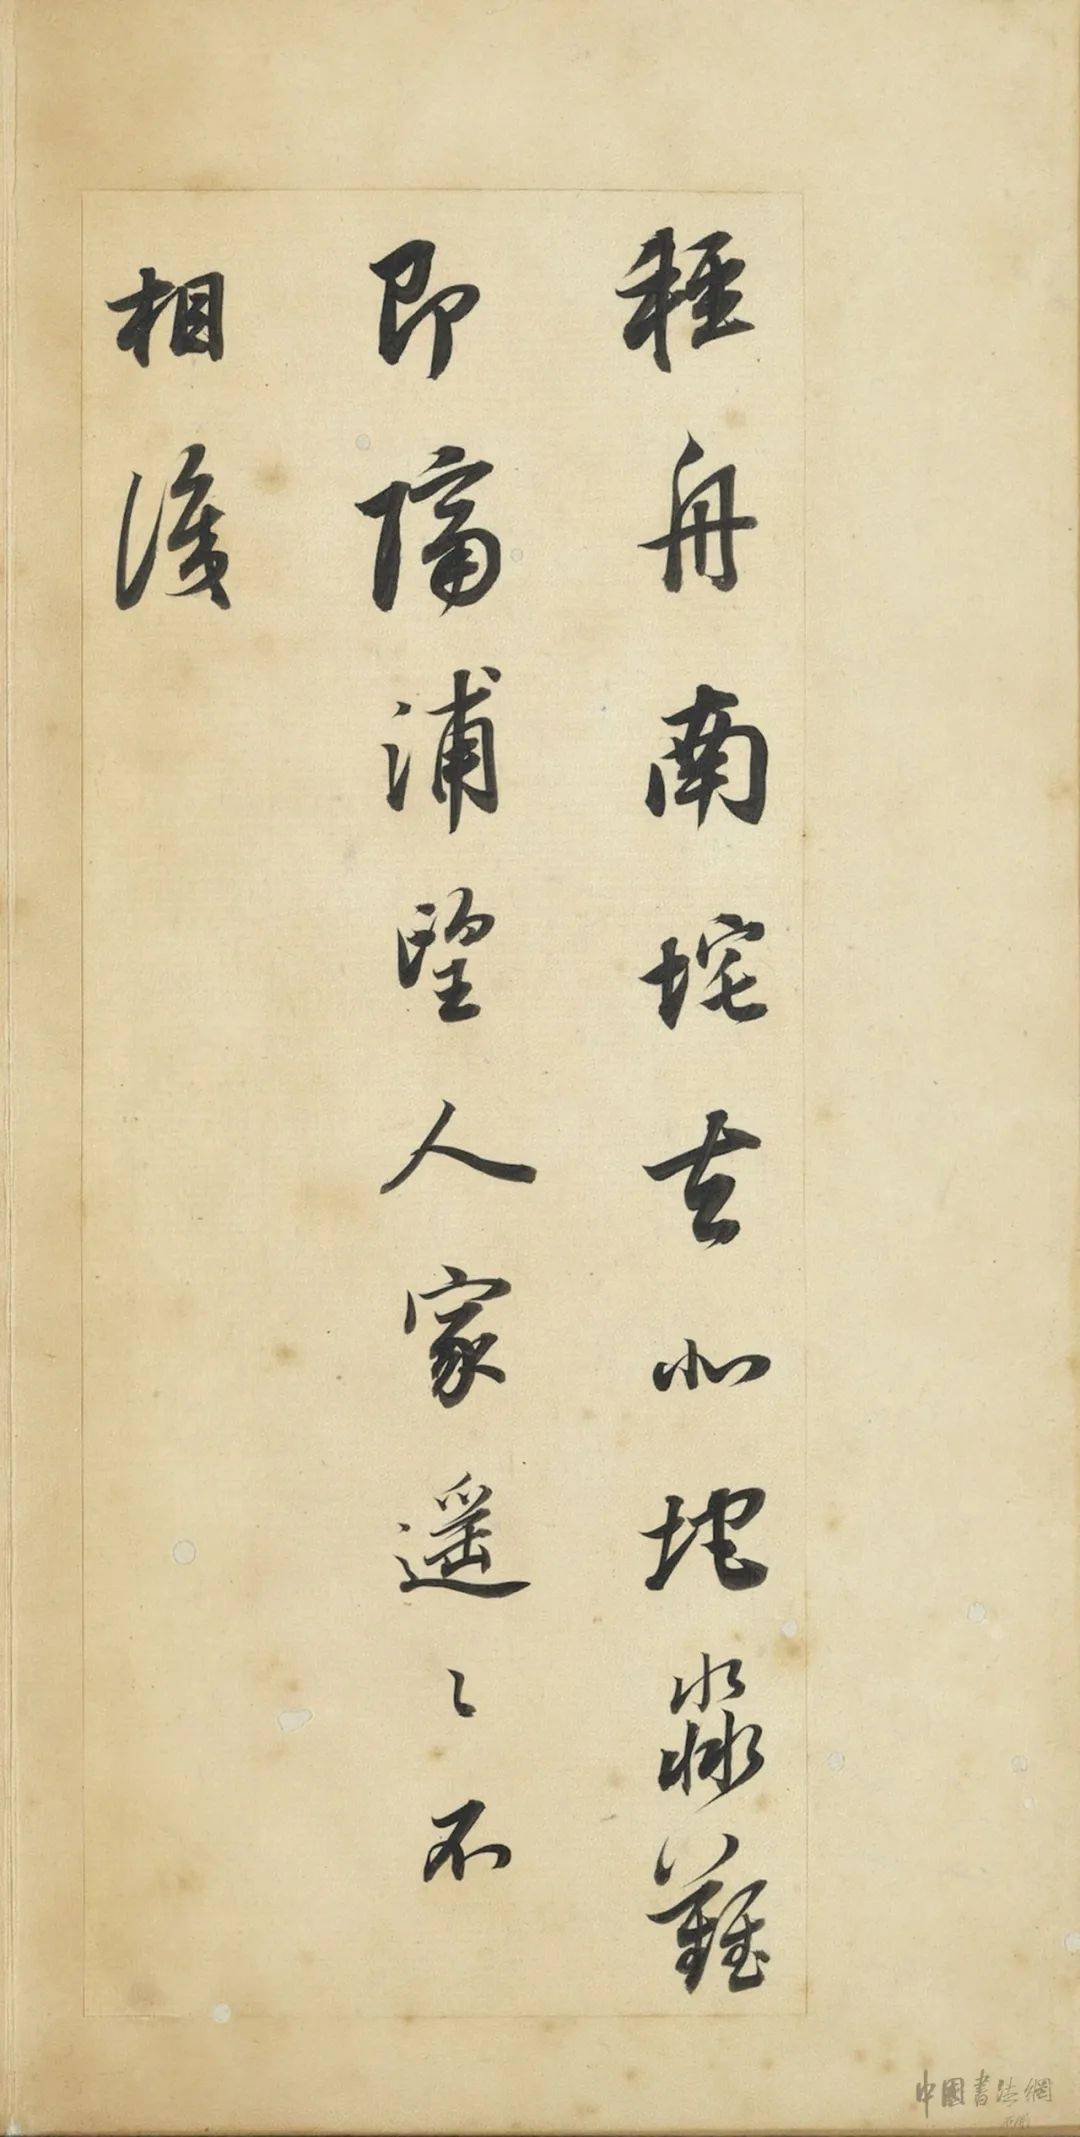 輕舟南垞去北垞淼難
即隔浦望人家遥〻不
相識
中國書法網